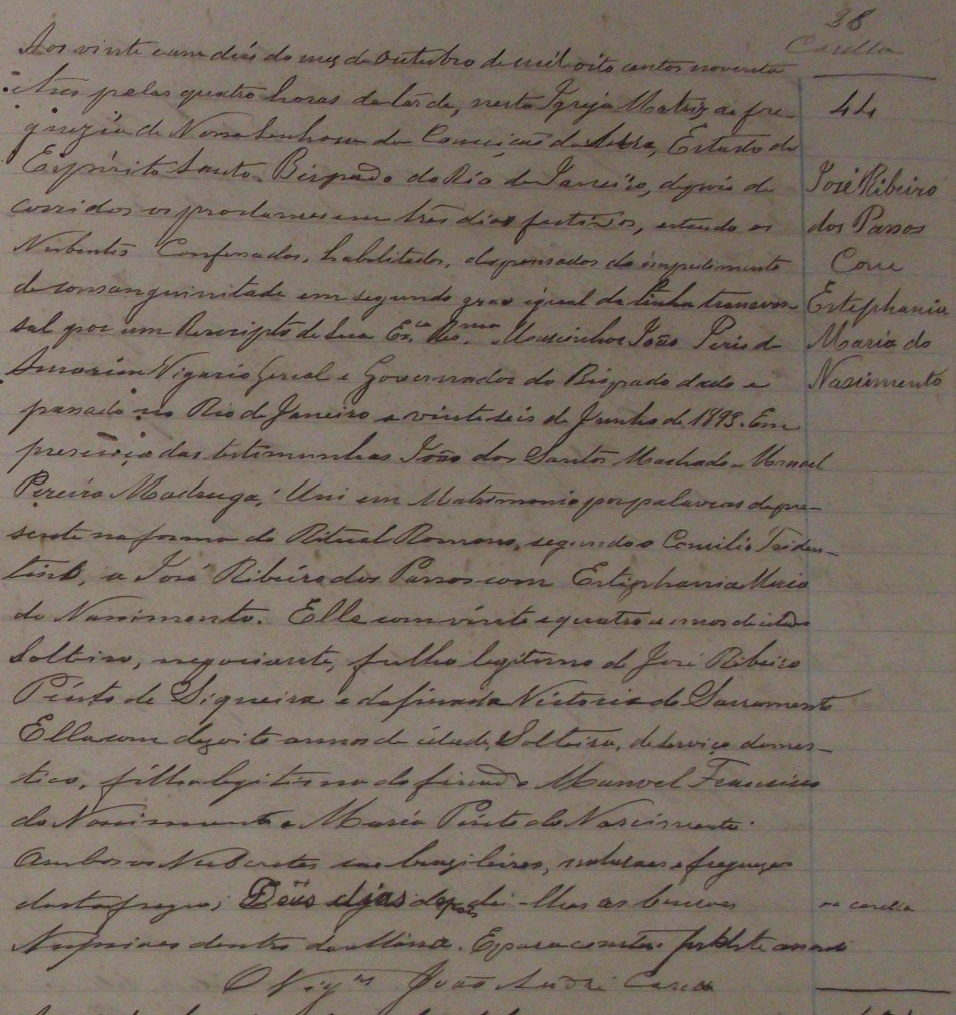 38
Casella
Aos vinte e um dias do mez de Outubro de mil oito centos noventa
e tres pelas quatro horas da tarde, nesta Igreja Matriz da fre-
guezia de Nossa Senhora da Conceição da Serra, Estado do
Espirito Santo. Bispado do Rio de Janeiro, depois de
corridos os proclames em tres dias festivos, estando os
Nubentes Confessados, habilitados, dispensados do impedimento
de consanguinitade em segundo grao igual da linha transver-
sal por um Rescripto de Sua Ex.cia Rev.ma Monsenhor João Peris de
Amorim Vigario Geral e Governador do Bispado dado e
passado no Rio de Janeiro a vinte seis de Junho de 1893. Em
presença das testimunhas João dos Santos Machado e Manoel
Pereira Madruga, Uni em Matrimonio por palavras de pre-
sente na forma do Ritual Romano, segundo o Concilio Triden-
tino, a José Ribeiro dos Passos com Estephania Maria
do Nascimento. Elle com vinte e quatro annos de idade
Solteiro, negociante, filho legitimo de José Ribeiro
Pinto de Siqueira e da finada Victoria do Sacramento
Ella com dezoito annos de idade, Solteira, de serviço domes-
tico, filha legitima do finado Manoel Francisco
do Nascimento e Maria Pinto do Nascimento.
Ambos os Nubentes sao brazileiros, naturaes e freguezes
desta fregue; Dous dias depois dei-lhes as bençoes
Nupciaes dentro da Missa. E para constar fiz este
O Vig.ro João André Casella
44
José Ribeiro
dos Passos
Com
Estephania
Maria do
Nascimento
Casella